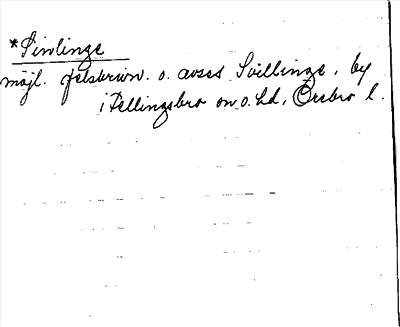 *Sinlinge
möjl. felskrivn. o. avses Svillinge, by
i Fellingsbro sn o. hd, Örebro l.